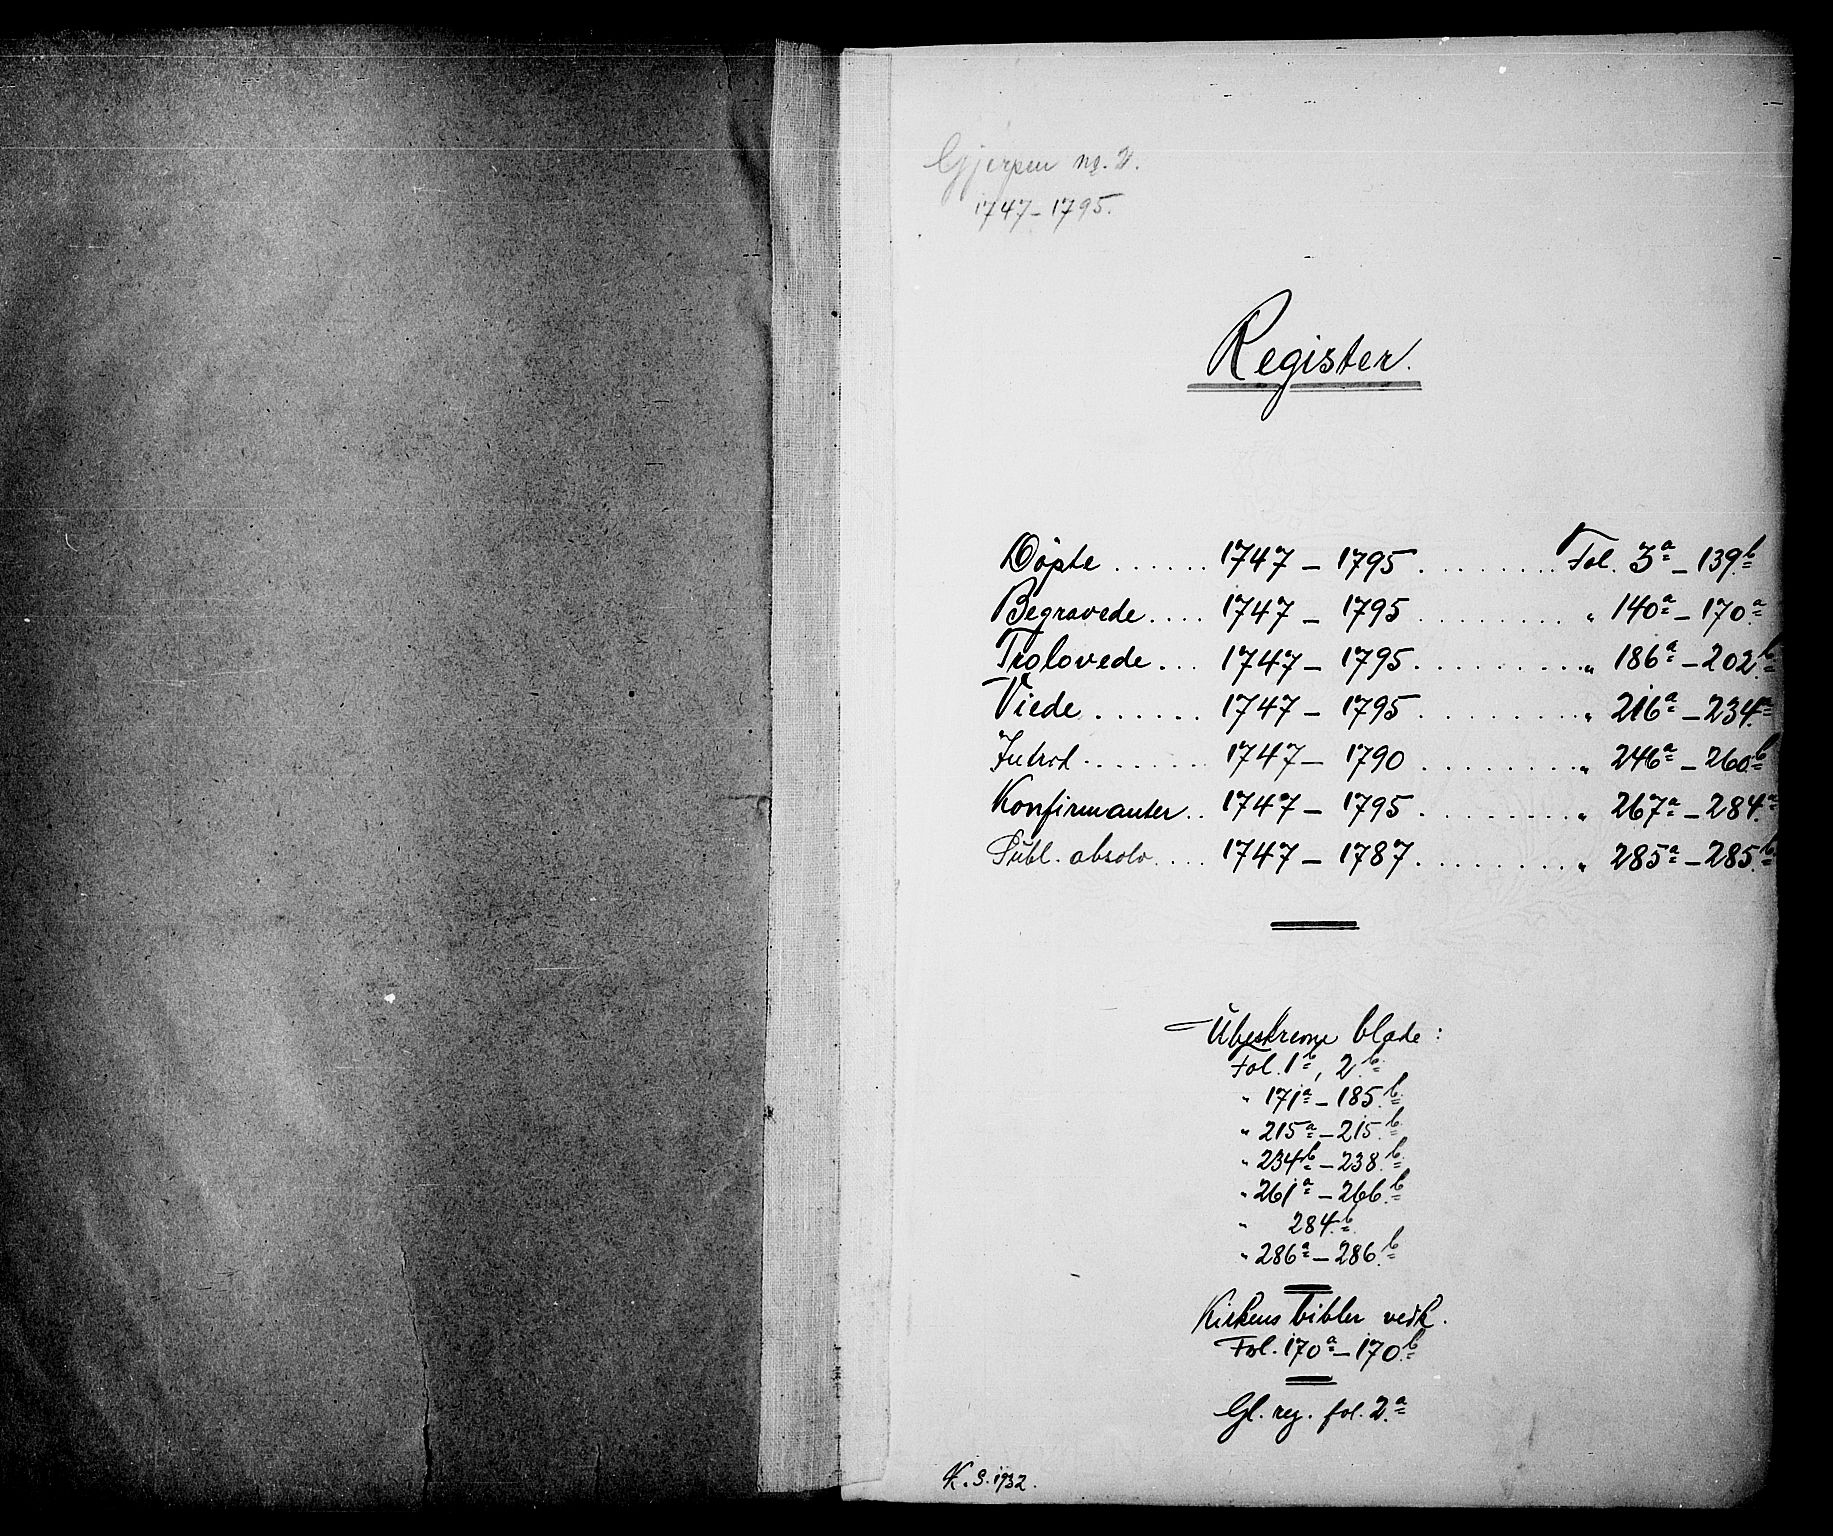 Gjerpen nr. 2.
1747-1795.
Register.
Døpte ...... 1747 - 1795 ........ Fol. 3a - 139b
Begravede .... 1747 - 1795 ......... " 140a - 170a
Trolovede ... 1747 - 1795 ......... " 186a - 202b
Viede ...... 1747 - 1795 ......... " 216a - 234a
Introd. ....... 1747 - 1790 ......... " 246a - 260b
Konfirmanter .. 1747 - 1795 ......... " 267a - 284a
Publ. absolv. ... 1747 - 1787 ......... " 285a - 285b
Ubeskrevne blade:
Fol. 1b, 2b
" 171a - 185b
" 215a - 215b
" 234b - 238b
" 261a - 266b
" 284b
" 286a - 286b
Kirkens bibler vedk.
Fol. 170a - 170b
Gl. reg. fol. 2a
K. S. 1932.